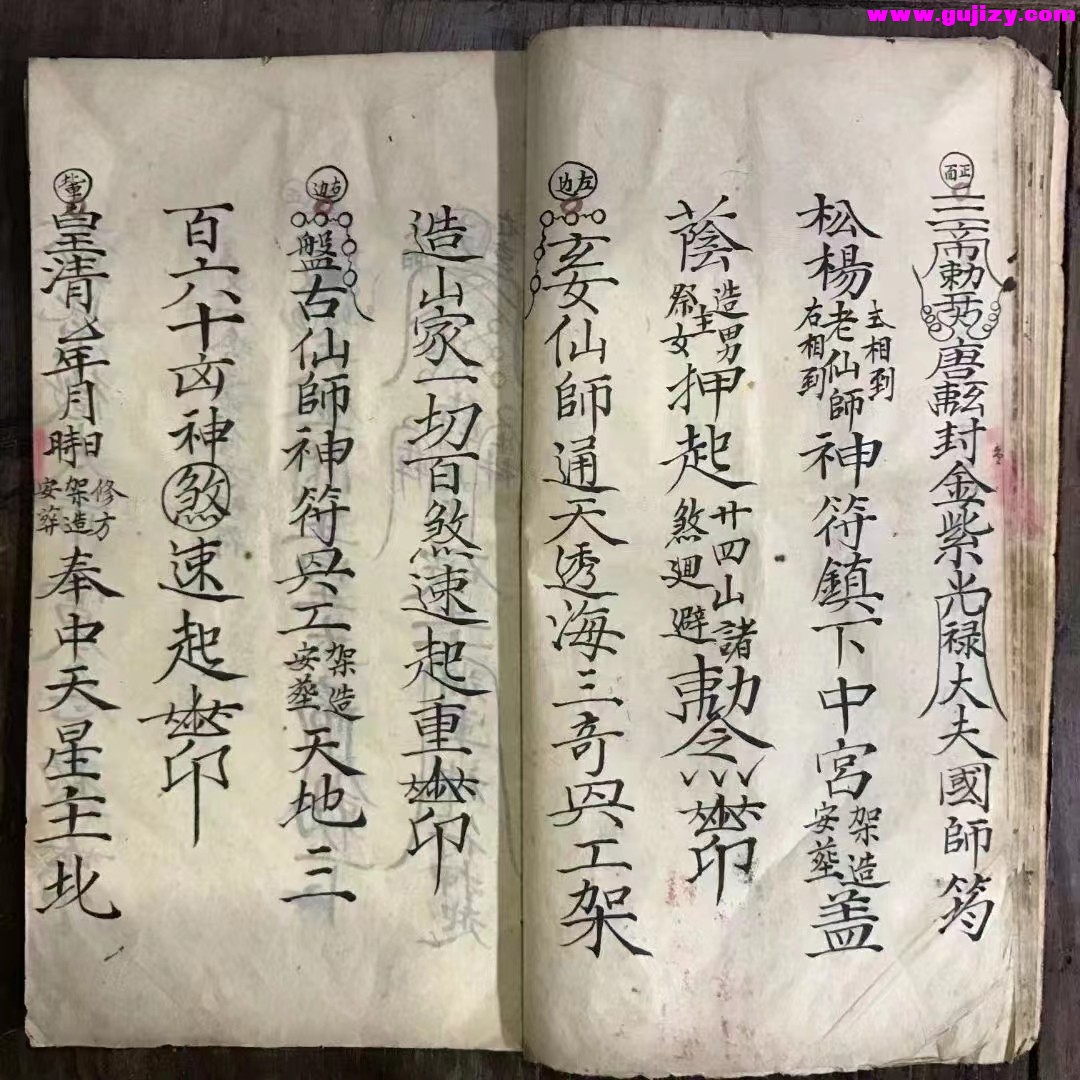 www.gujizy.com
正面
三 勅 唐 封金紫光禄大夫國師筠
松楊老仙師神符鎮下中宮架造安葬盖
左相到
右相到
蔭造男祭女主押起廿四山諸煞廻避 令 印
左边
姜仙師通天透海三奇與工架
造山家一切百煞速起重 印
右边
盤古仙師神符與工架造安葬天地三
百六十凶神煞速起 印
皇清 年月日時修方架造安葬奉中天星主北